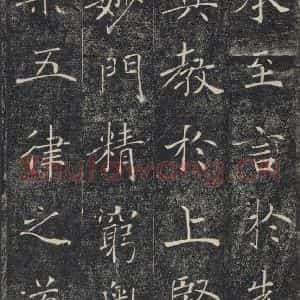 至言於
教於上
妙門精窮奧
五律之道
Shufawang.CN